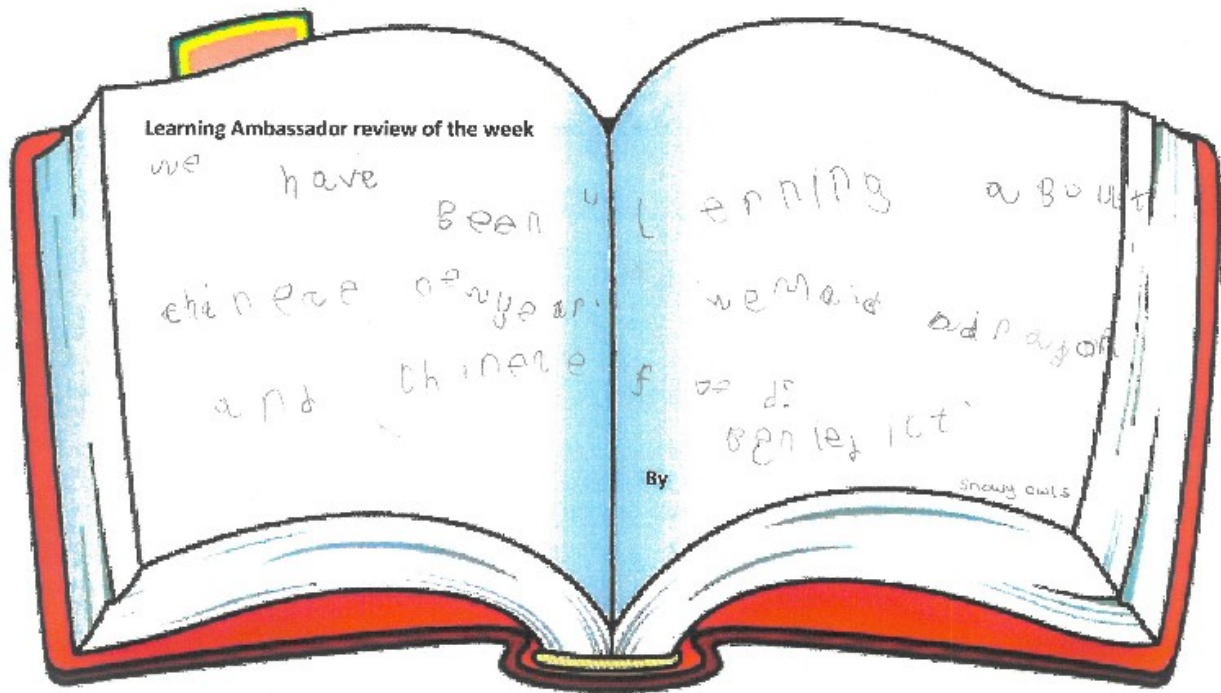 Learning Ambassador review of the week
we have Been Lerning aBout
chinece newyear. wemaid adragon
and chinece food.
Beniedict
By
snowy owls